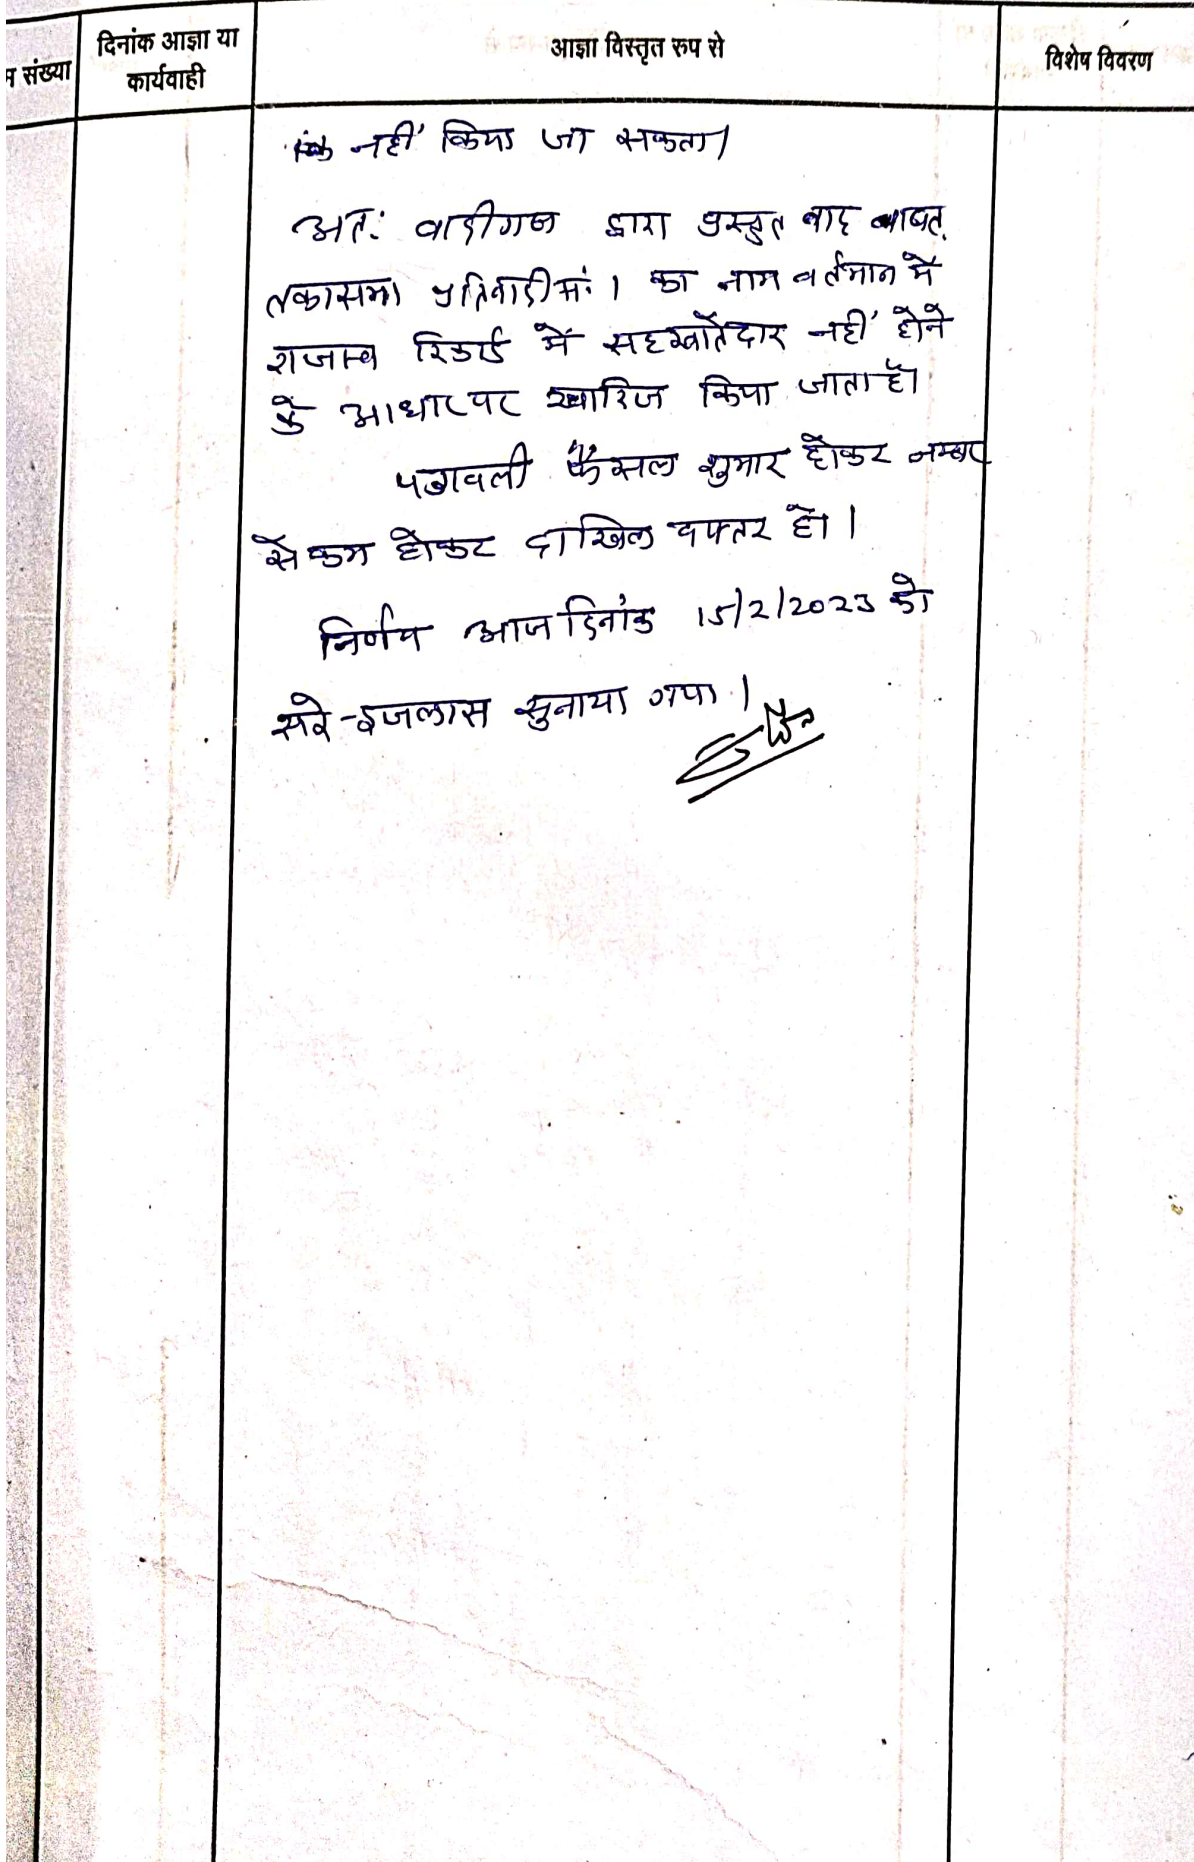 संख्या
दिनांक आज्ञा या
कार्यवाही
आज्ञा विस्तृत रुप से
विशेष विवरण
नहीं किया जा सकता।
अतः वादीगण द्वारा प्रस्तुत वाद बाबत्
तकासमा प्रतिवादी सं. 1 का नाम वर्तमान में
राजस्व रिकार्ड में सहखातेदार नहीं होने
के आधार पर खारिज किया जाता है।
पत्रावली फैसल शुमार होकर नम्बर
से कम होकर दाखिल दफ्तर हो।
निर्णय आज दिनांक 15/2/2023 को
सरे-इजलास सुनाया गया।